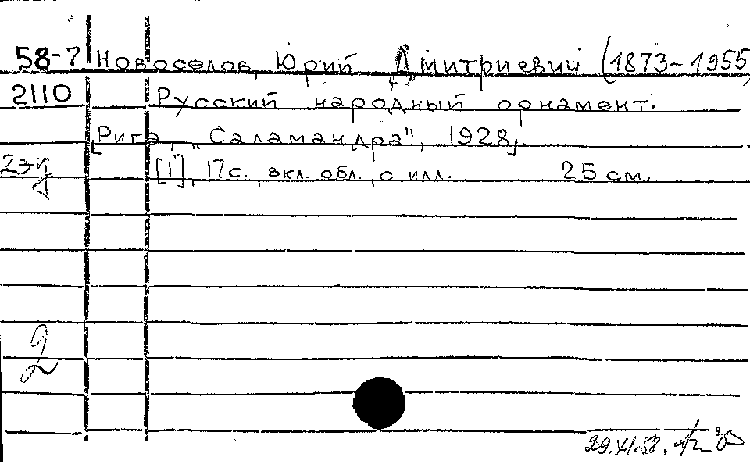 58-7 Новоселов, Юрий Дмитриевич (1873-1955
2110 Русский народный орнамент.
[Рига, „Саламандра", 1928],
2эу [1], 17с. вкл. обл., с илл. 25 см.
2
29.XI.58.